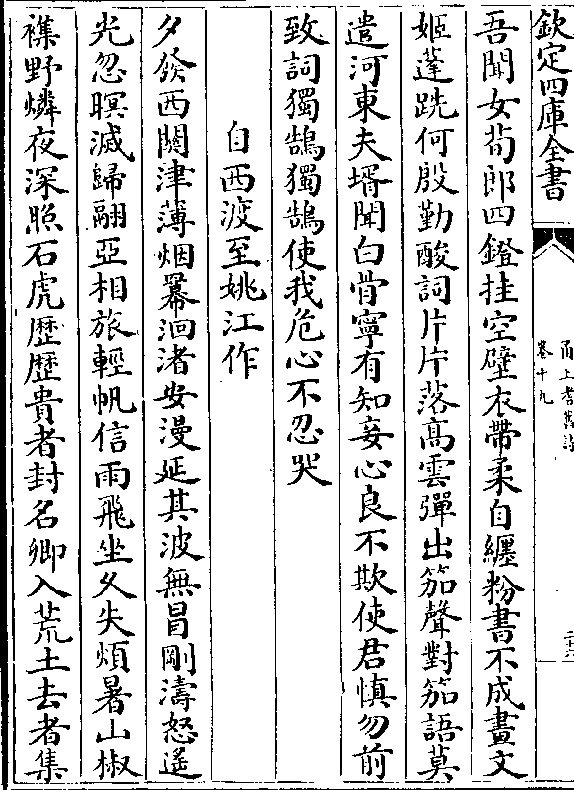 欽定四庫全書
甬上耆舊詩
卷十九
二十六
吾聞女荀郎四鐙挂空壁衣帶柔自纏粉書不成畫文
姬蓬跣何殷勤酸詞片片落高雲彈出笳聲對笳語莫
遣河東夫壻聞白骨寧有知妾心良不欺使君慎勿前
致詞獨鵠獨鵠使我危心不忍哭
自西渡至姚江作
夕發西關津薄烟羃洄渚安漫延其波無冒剛濤怒遙
光忽暝滅歸翮亞相旅輕帆信雨飛坐久失煩暑山椒
襍野燐夜深照石虎歷歷貴者封名卿入荒土去者集